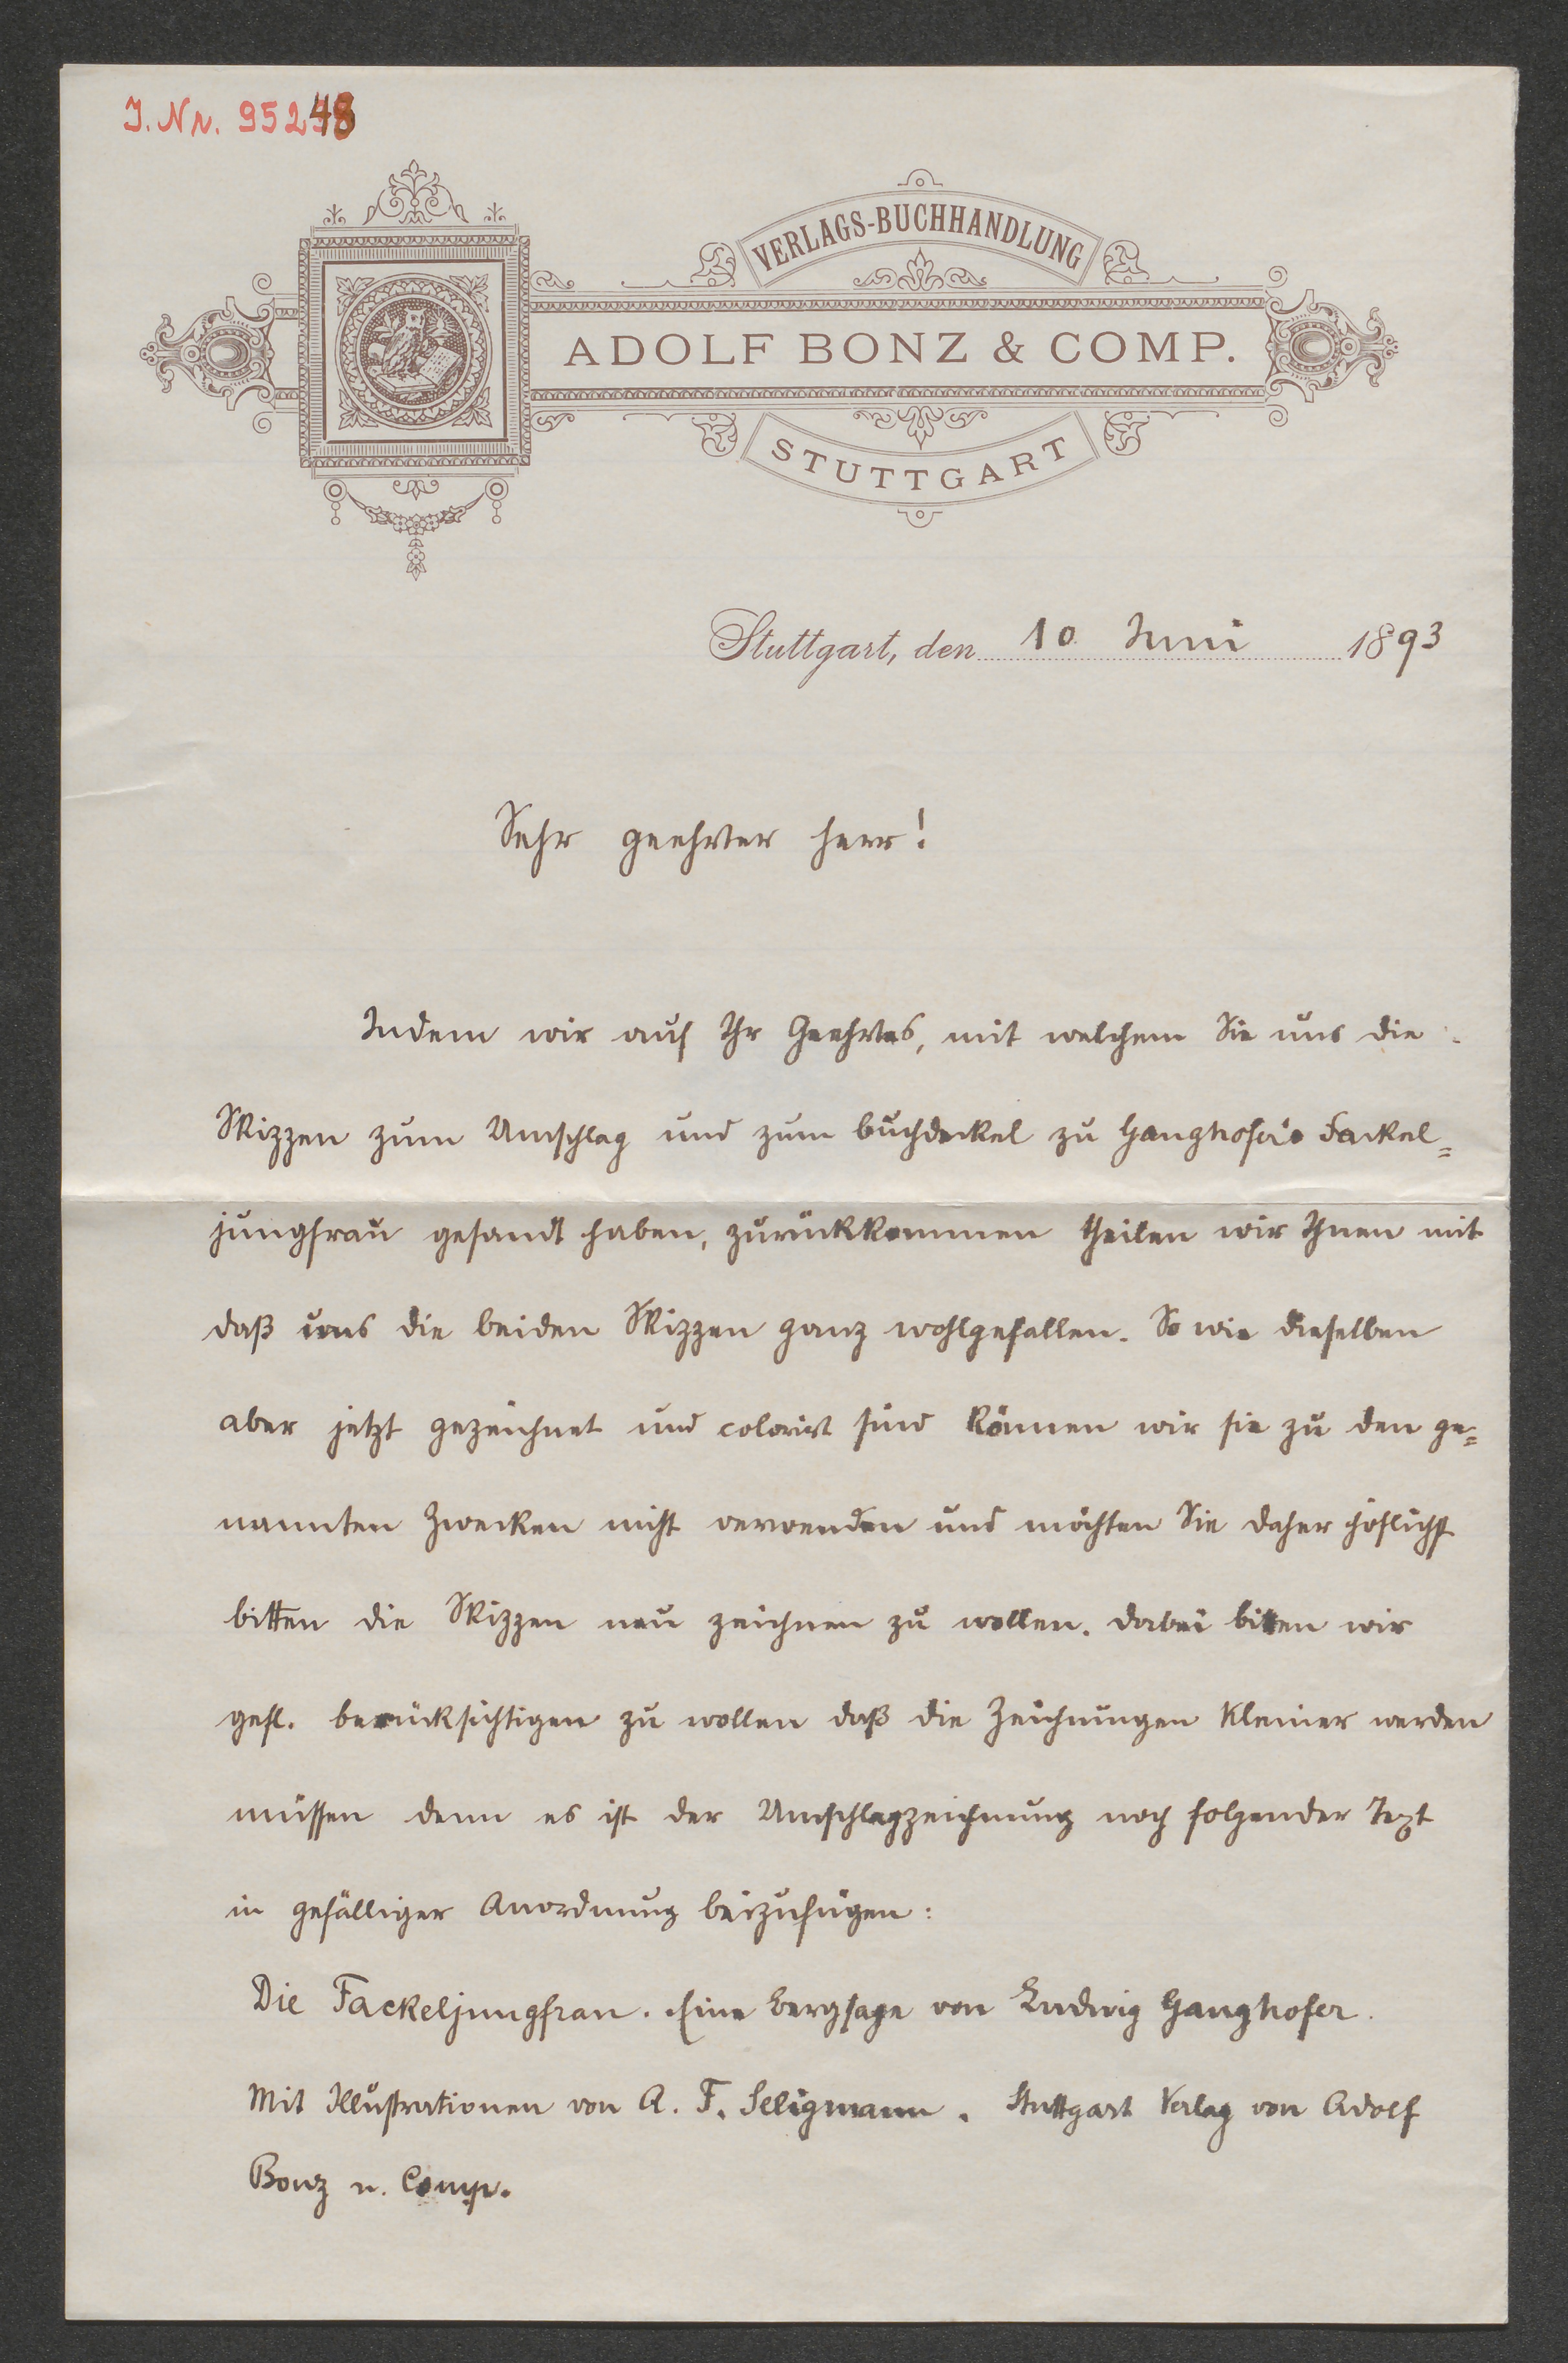 J. Nr. 95248
VERLAGS-BUCHHANDLUNG
ADOLF BONZ & COMP.
STUTTGART
Stuttgart, den 10 Juni 1893
Sehr geehrter Herr!
Indem wir auf Ihr Geehrtes, mit welchem Sie uns die
Skizzen zum Umschlag und zum Buchdeckel zu Ganghofer's Fackel=
jungfrau gesandt haben, zurückkommen theilen wir Ihnen mit
daß uns die beiden Skizzen ganz wohlgefallen. So wie dieselben
aber jetzt gezeichnet und colorirt sind können wir sie zu den ge=
nannten Zwecken nicht verwenden und möchten Sie daher höflichst
bitten die Skizzen neu zeichnen zu wollen. Dabei bitten wir
gefl. berücksichtigen zu wollen daß die Zeichnungen kleiner werden
müssen denn es ist der Umschlagzeichnung noch folgender Text
in gefälliger Anordnung beizufügen:
Die Fackeljungfrau. Eine Bergsage von Ludwig Ganghofer.
Mit Illustrationen von A. F. Seligmann. Stuttgart Verlag von Adolf
Bonz u. Comp.